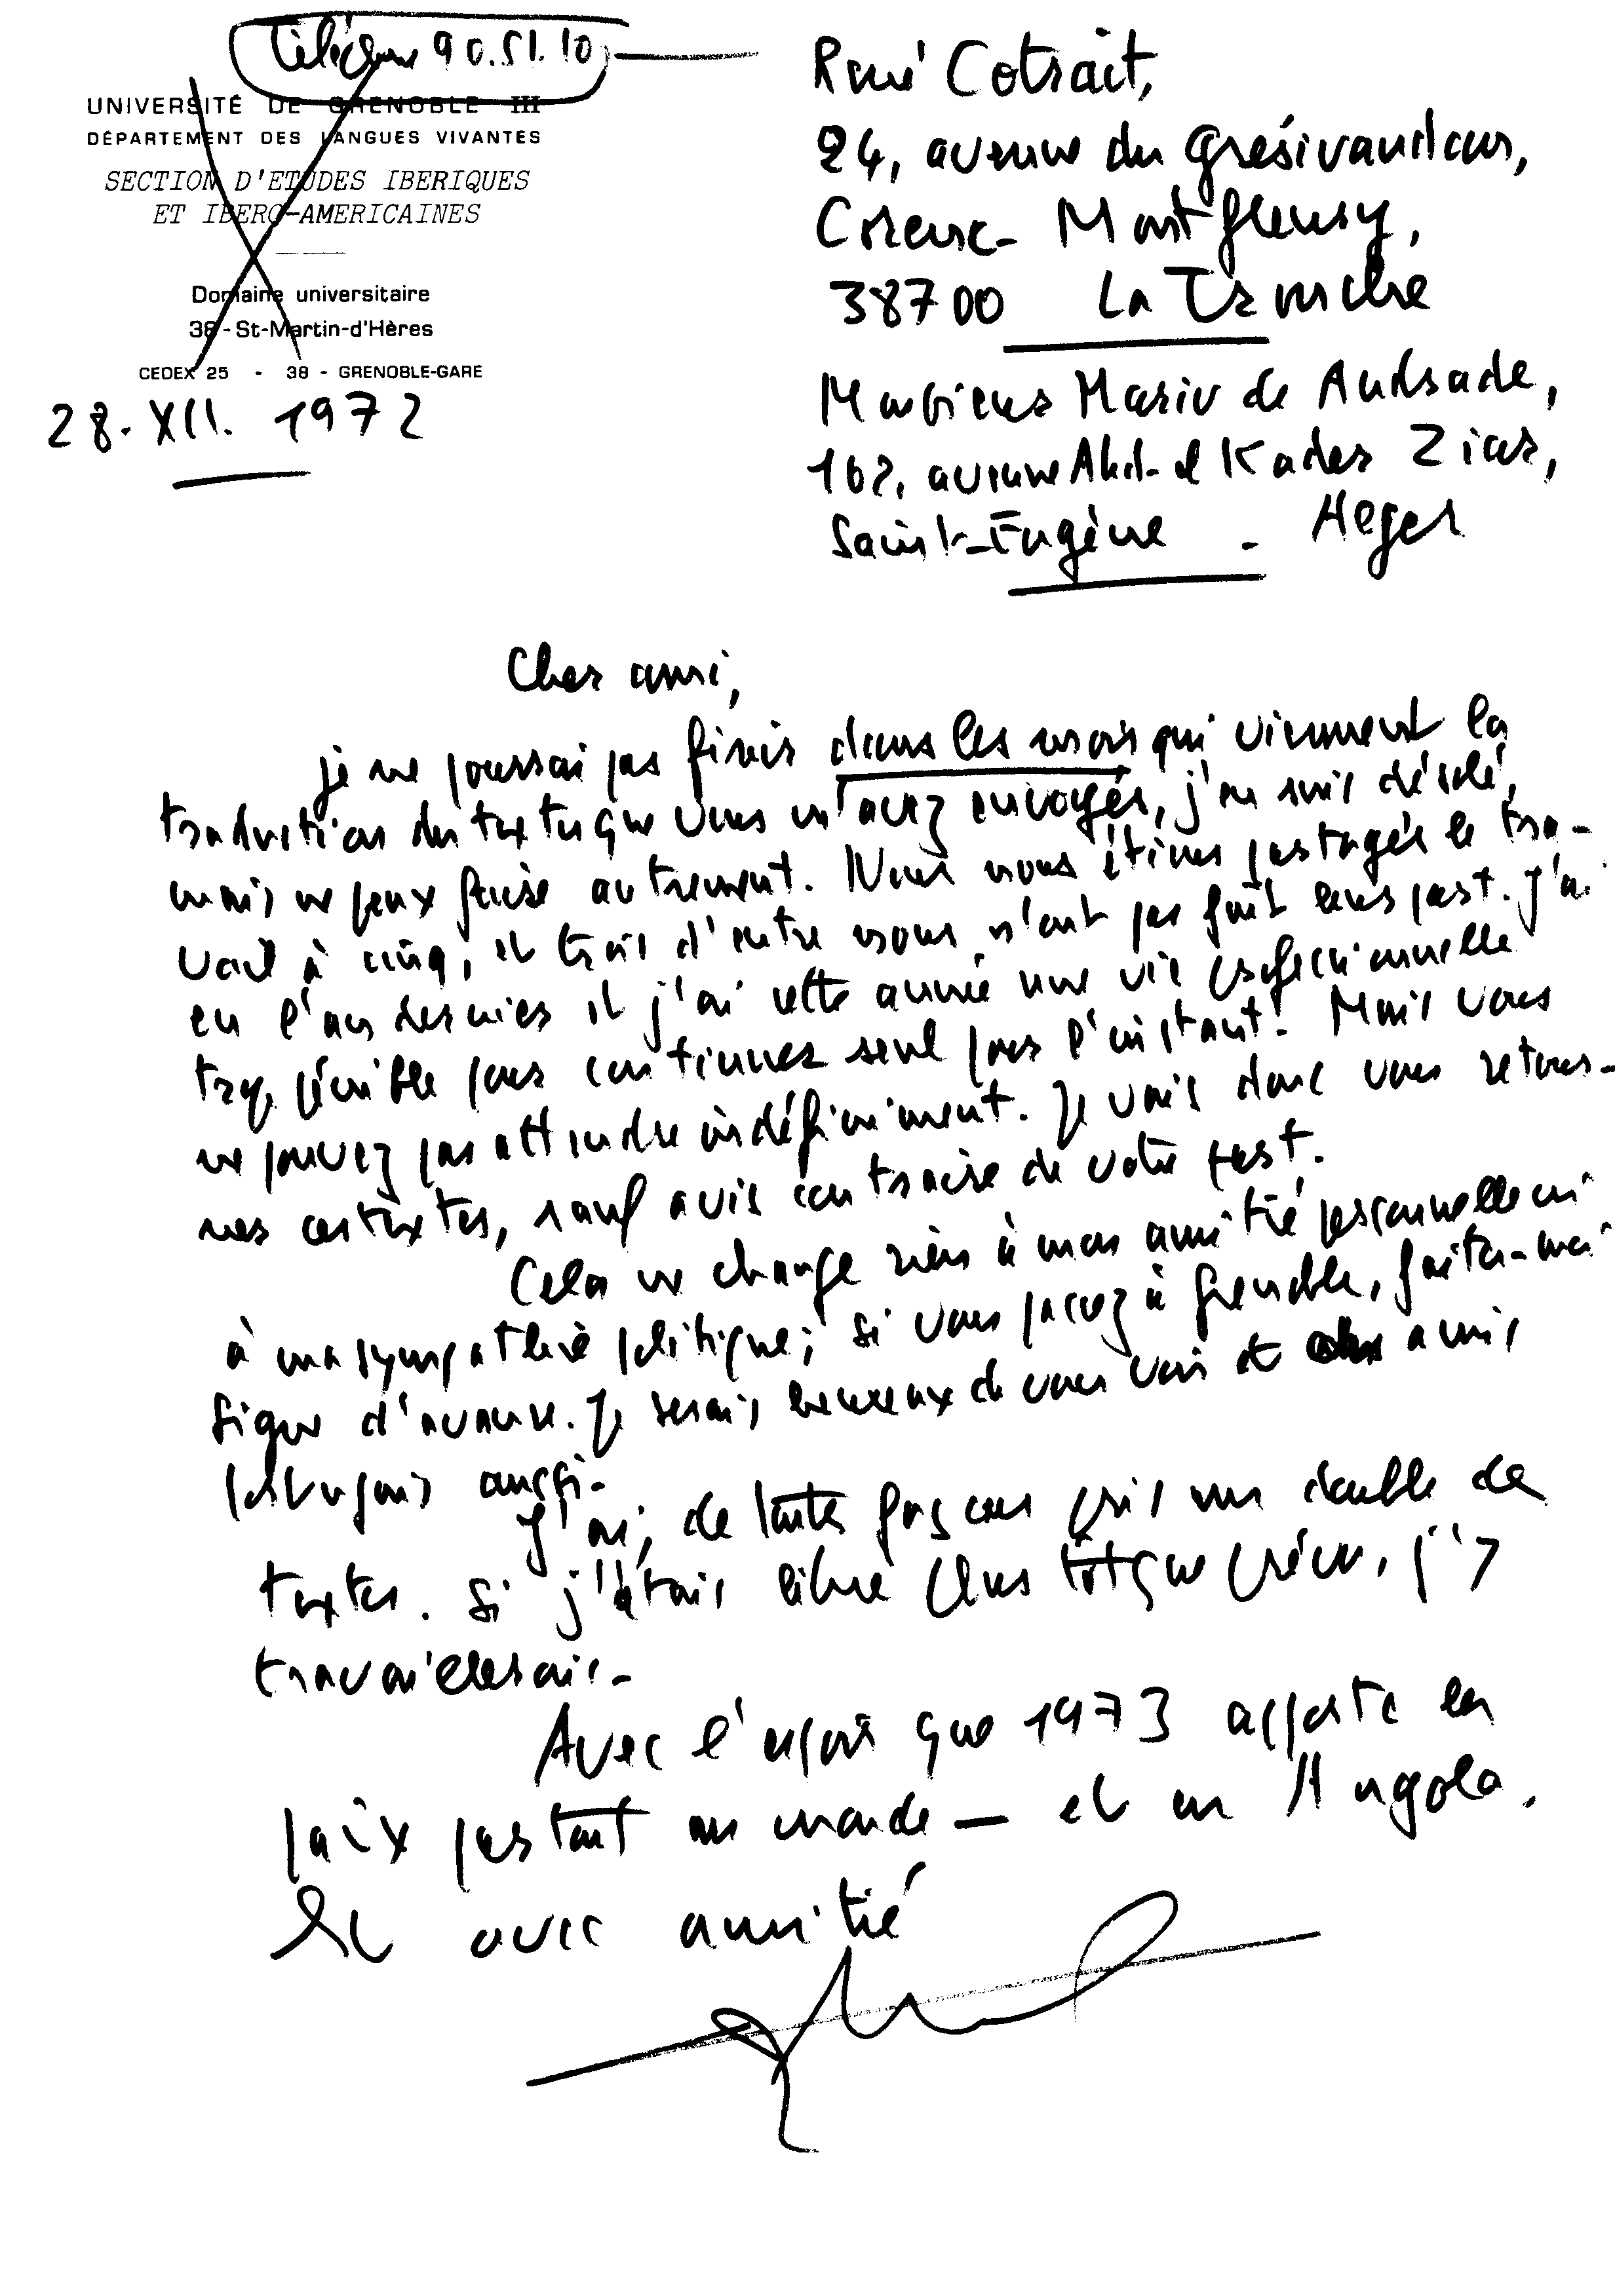 Téléphone 90.51.10
UNIVERSITÉ DE GRENOBLE III
DÉPARTEMENT DES LANGUES VIVANTES
SECTION D'ETUDES IBERIQUES
ET IBERO-AMERICAINES
Domaine universitaire
38-St-Martin-d'Hères
CEDEX 25 - 38 - GRENOBLE-GARE
28.XII. 1972
René Cotrait,
24, avenue du Grésivaudan,
Corenc-Montfleury,
38700 La Tronche
Monsieur Mario de Andrade,
102, avenue Abd-el Kader Ziar,
Saint-Eugène - Alger
Cher ami,
je ne pourrai pas finir dans les mois qui viennent la
traduction des textes que vous m'avez envoyés, j'en suis désolé,
mais ne peux faire autrement. Nous nous étions partagés le tra-
vail à cinq, et trois d'entre nous n'ont pas fait leur part. J'ai
eu l'an dernier et j'ai cette année une vie professionnelle
trop pénible pour continuer seul pour l'instant! Mais vous
ne pouvez pas attendre indéfiniment. Je vais donc vous retour-
ner ces textes, sauf avis contraire de votre part.
Cela ne change rien à mon amitié personnelle ni
à ma sympathie politique; si vous passez à Grenoble, faites-moi
signe d'avance. Je serais heureux de vous voir et amis
portugais aussi.
J'ai, de toutes façons pris un double de
textes. Si j'étais libre plus tôt que prévu, j'y
travaillerais.
Avec l'espoir que 1973 apporte la
paix partout au monde — et en Angola.
Et avec amitié